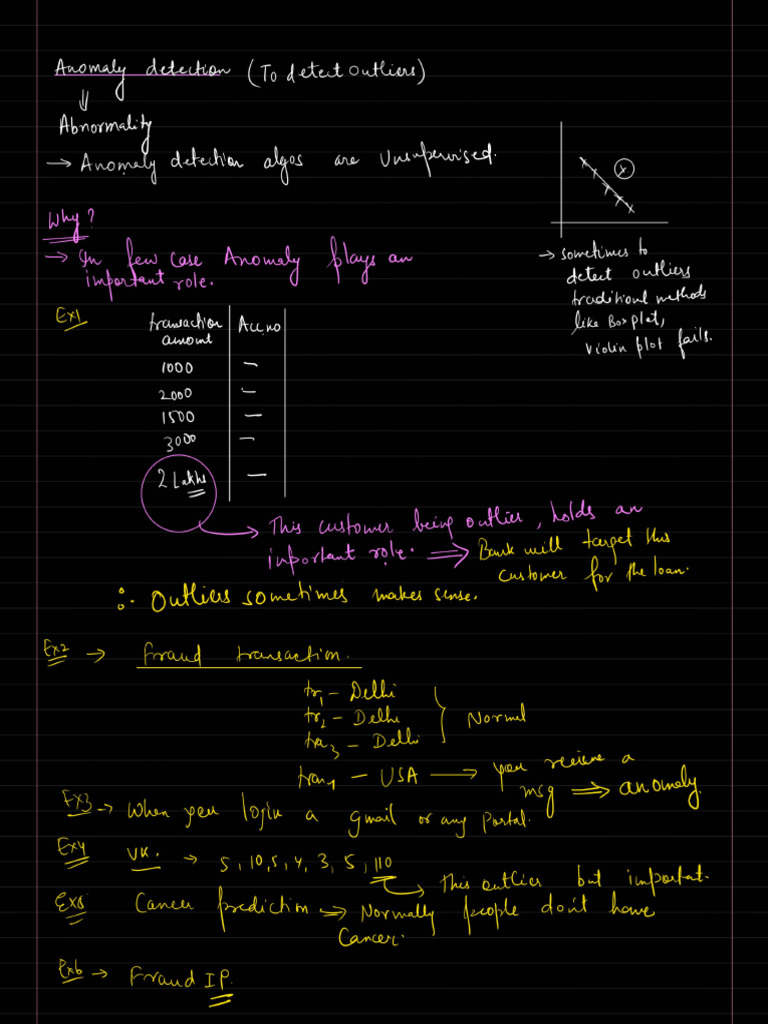 Anomaly detection (To detect Outliers)
⇓
Abnormality
→ Anomaly detection algos are Unsupervised.
Why?
→ In few case Anomaly plays an
important role.
→ sometimes to
detect outliers
traditional methods
like Boxplot,
violin plot fails.
Ex1
transaction amount | Acc.no
1000 | —
2000 | —
1500 | —
3000 | —
2 Lakhs | —
→ This customer being outlier, holds an
important role. ⇒ Bank will target this
customer for the loan.
∴ Outliers sometimes makes sense.
Ex2 → fraud transaction.
tr1 - Delhi
tr2 - Delhi } Normal
tra3 - Delhi
tran4 - USA → you recieve a
msg ⇒ anomaly.
Ex3 → When you login a gmail or any Portal.
Ex4 VK. → 5, 10, 5, 4, 3, 5, 110
→ This outlier but important.
Ex5 Cancer prediction → Normally people don't have
Cancer.
Ex6 → Fraud IP.